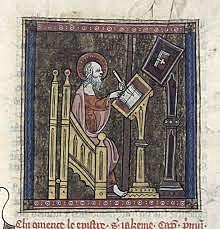 Chi ɔmence le epistre · S · iakeme · Cap̄ · pm̄i ·